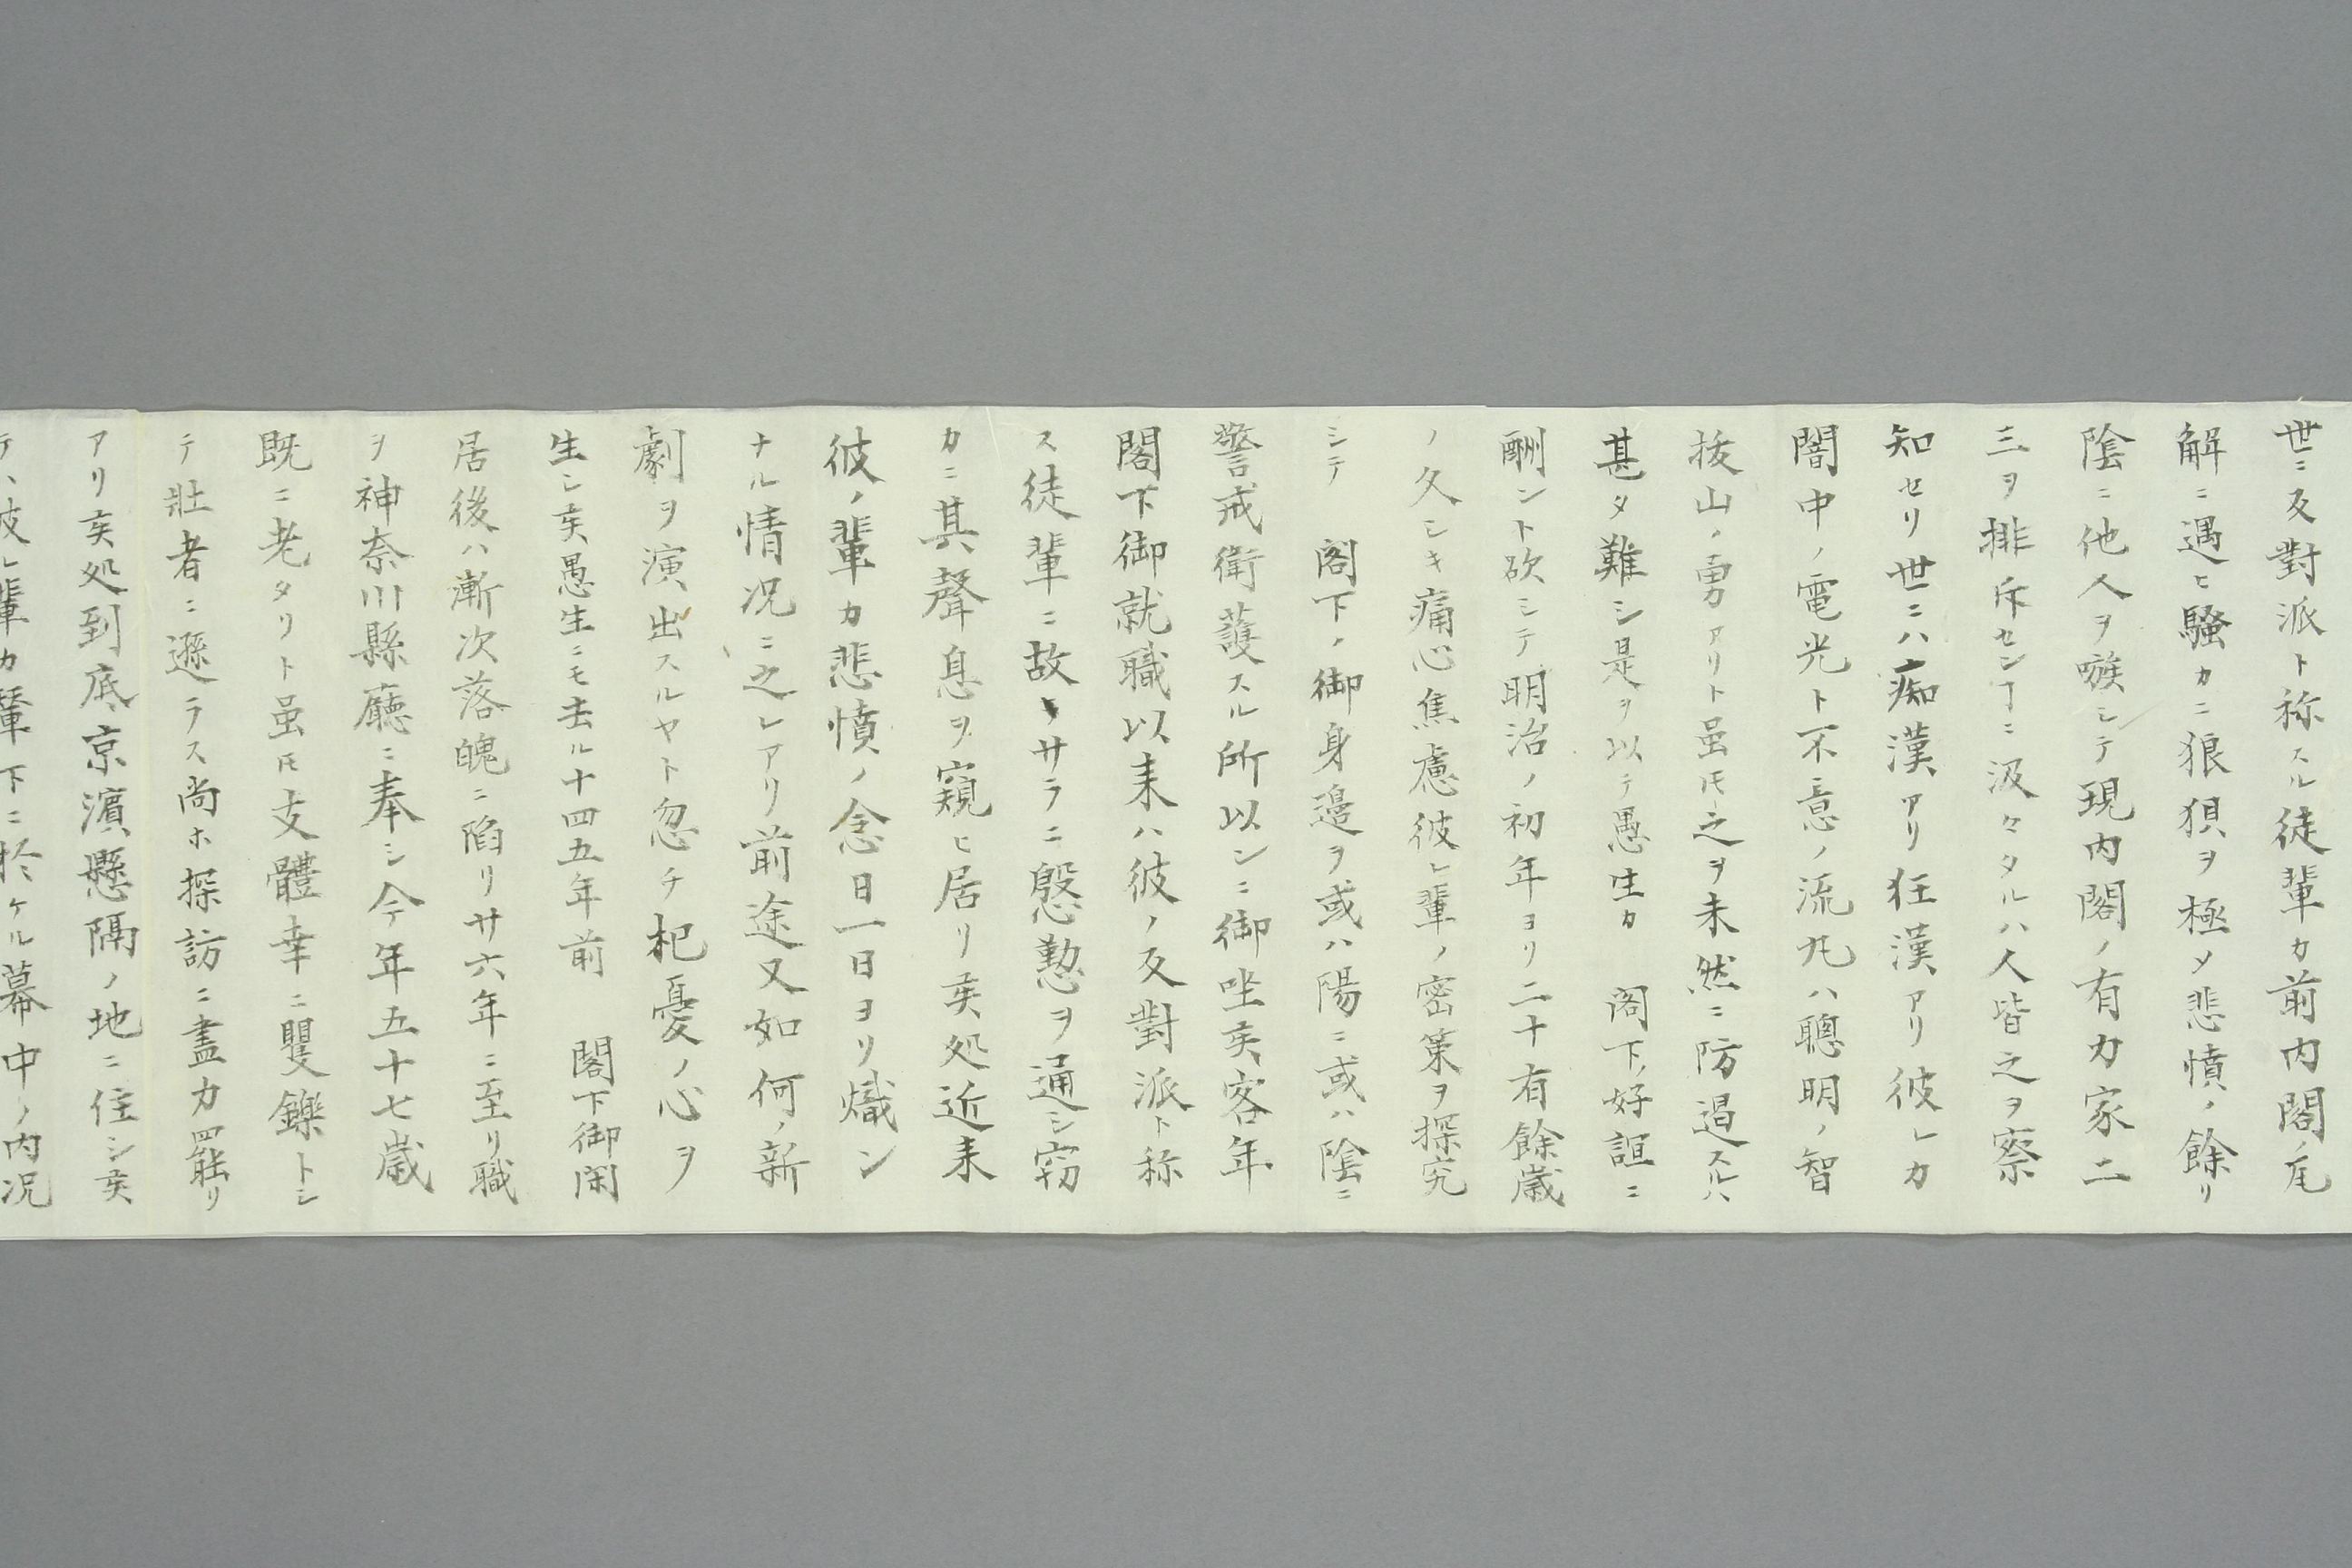 世ニ反對派ト称スル徒輩カ前内閣ノ瓦
解ニ遇ヒ騒カニ狼狽ヲ極メ悲憤ノ餘リ
陰ニ他人ヲ嗾シテ現内閣ノ有力家二
三ヲ排斥センヿニ汲々タルハ人皆之ヲ察
知セリ世ニハ痴漢アリ狂漢アリ彼レカ
闇中ノ電光ト不意ノ流丸ハ聰明ノ智
拔山ノ勇アリト虽𪜈之ヲ未然ニ防遏スルハ
甚タ難シ是ヲ以テ愚生カ 閣下ノ好誼ニ
酬ント欲シテ明治ノ初年ヨリ二十有餘歳
ノ久シキ痛心焦慮彼レ輩ノ密策ヲ探究
シテ 閣下ノ御身邊ヲ或ハ陽ニ或ハ陰ニ
警戒衛護スル所以ンニ御坐矦客年
閣下御就職以来ハ彼ノ反對派ト称
ス徒輩ニ故〻サラニ慇懃ヲ通シ窃
カニ其聲息ヲ窺ヒ居リ矦処近来
彼ノ輩カ悲憤ノ念日一日ヨリ熾ン
ナル情况ニ之レアリ前途又如何ノ新
劇ヲ演出スルヤト忽チ杞憂ノ心ヲ
生シ矦愚生ニモ去ル十四五年前 閣下御閑
居後ハ漸次落魄ニ陷リ廿六年ニ至リ職
ヲ神奈川縣廳ニ奉シ今年五十七歳
既ニ老タリト虽𪜈支體幸ニ矍鑠トシ
テ壯者ニ遜ラス尚ホ探訪ニ盡力罷リ
アリ矦処到底京濱懸隔ノ地ニ住シ矦
テハ彼レ輩カ輦下ニ於ケル幕中ノ内况